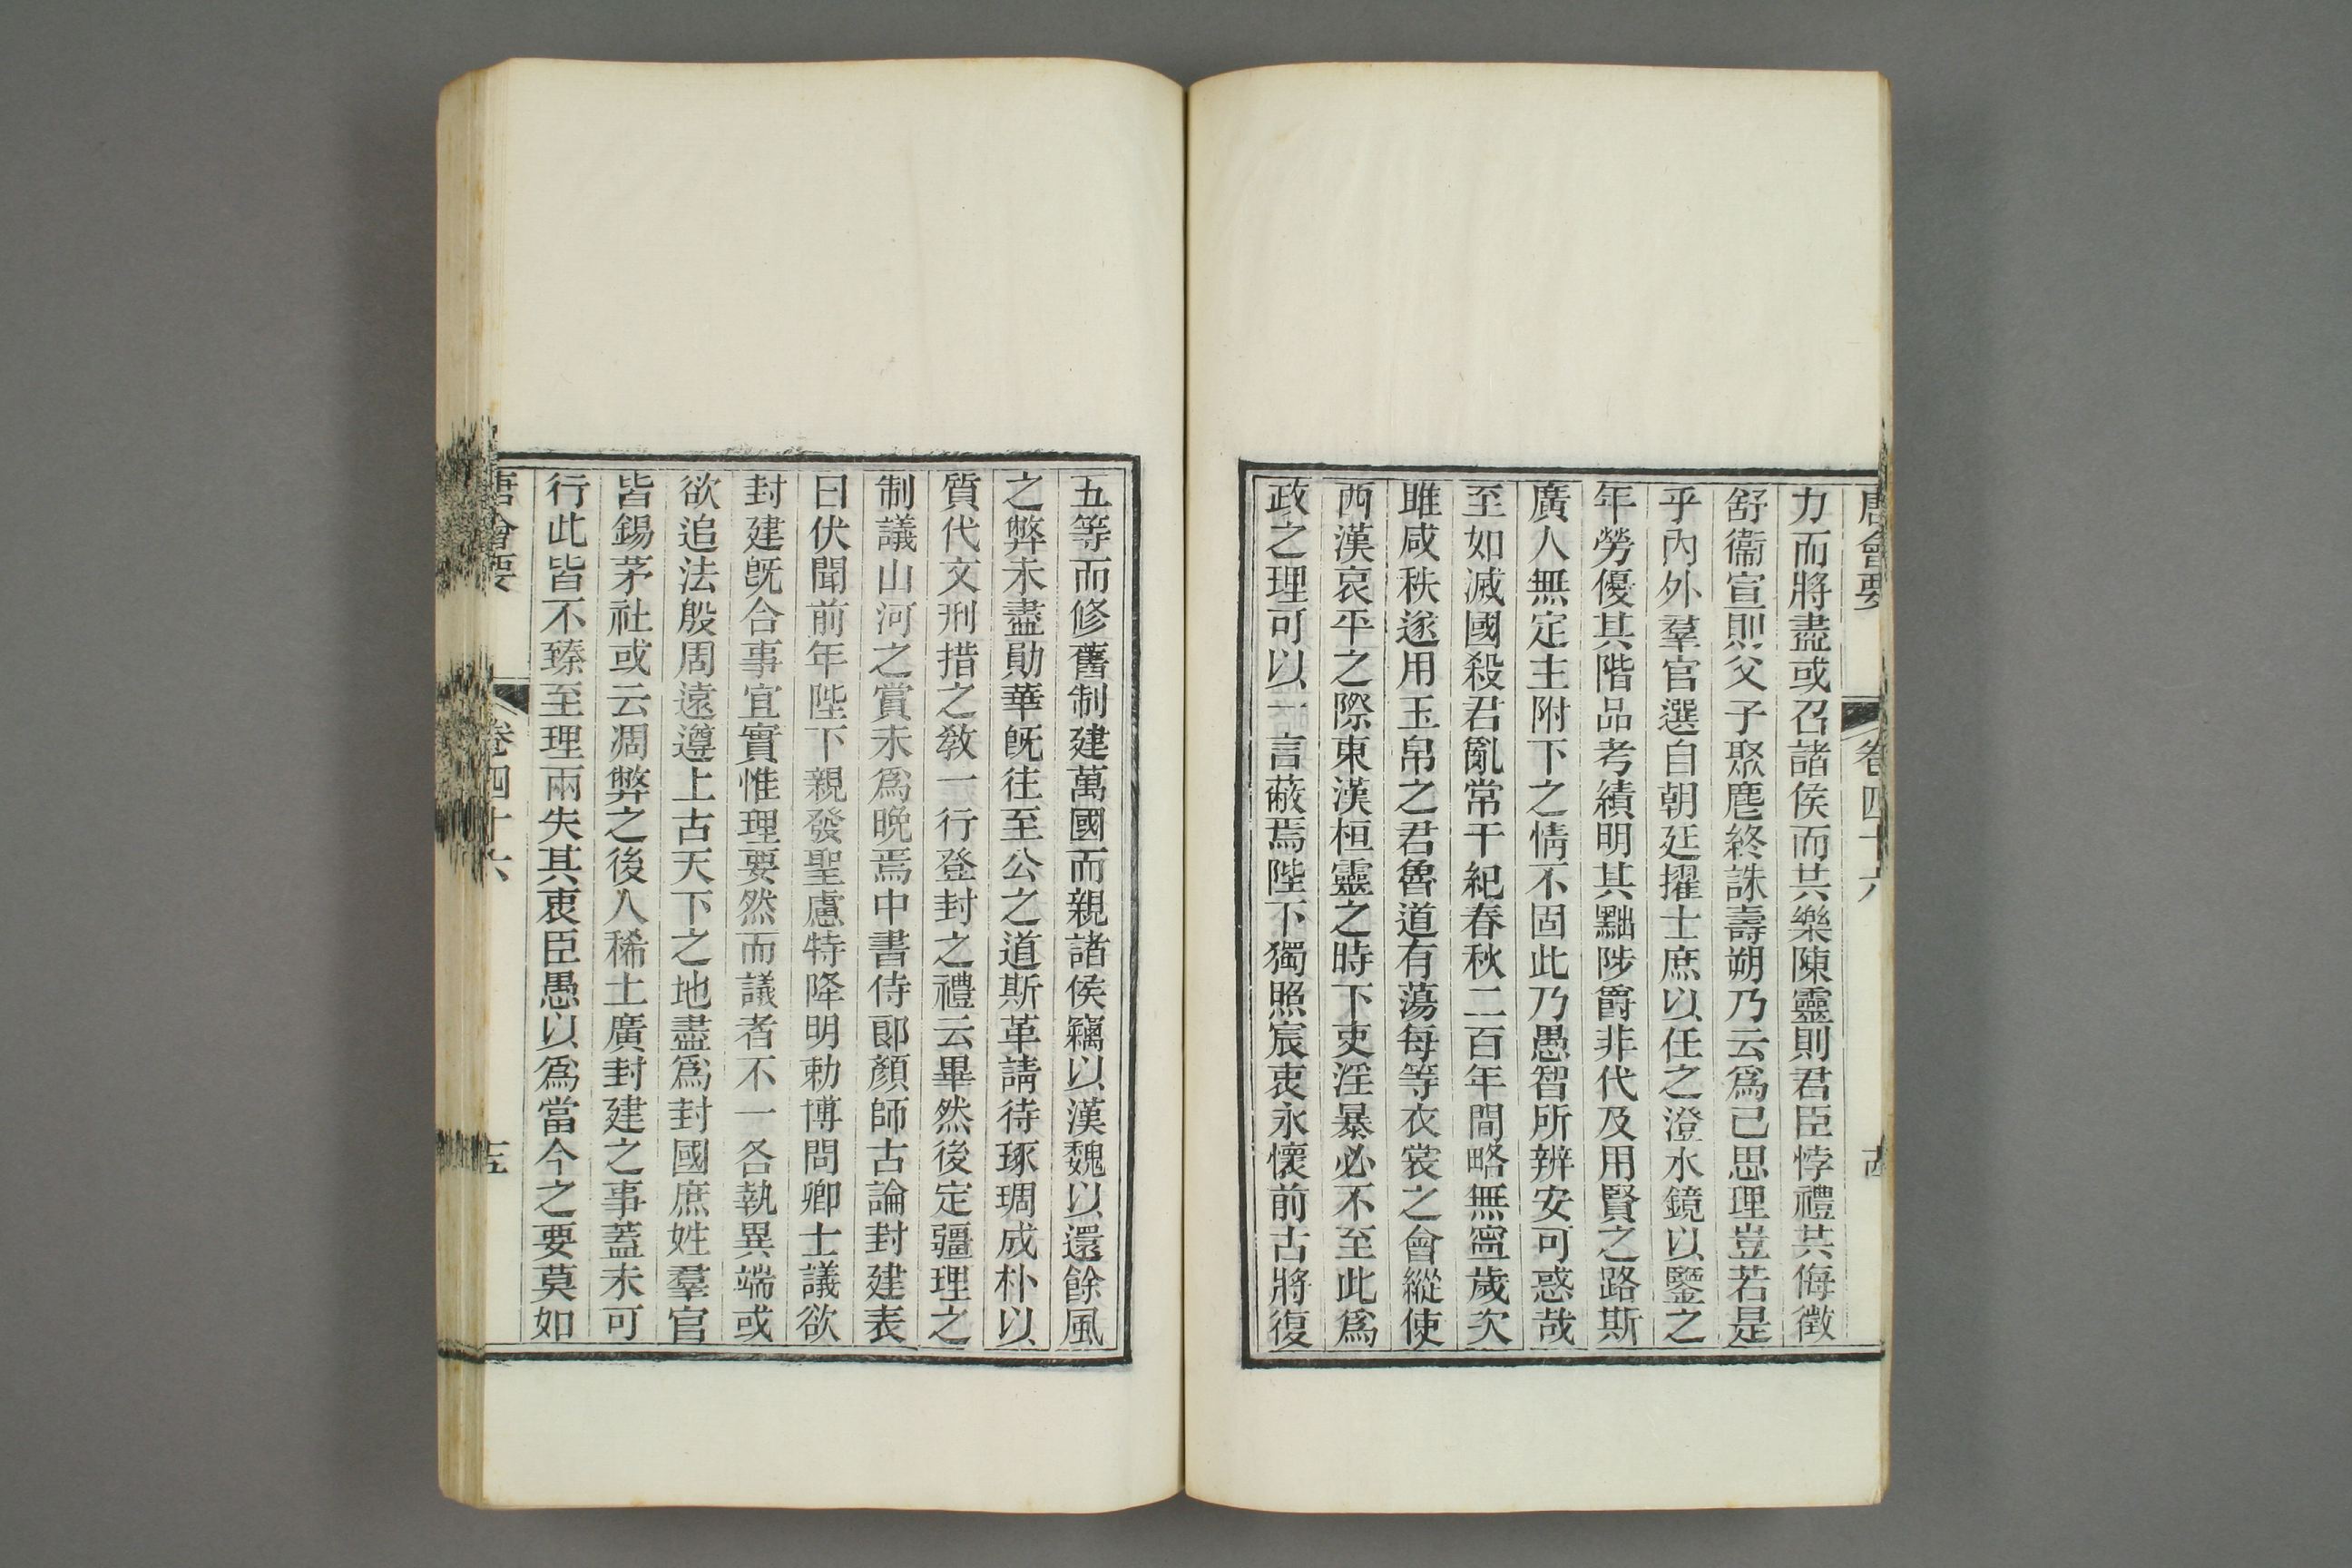 唐會要 卷四十六
力而將盡或召諸侯而共樂陳靈則君臣悖禮共侮徵
舒衞宣則父子聚麀終誅壽朔乃云爲己思理豈若是
乎內外羣官選自朝廷擢士庶以任之澄水鏡以鑒之
年勞優其階品考績明其黜陟爵非代及用賢之路斯
廣人無定主附下之情不固此乃愚智所辨安可惑哉
至如滅國殺君亂常干紀春秋二百年間略無寧歲次
雎咸秩遂用玉帛之君魯道有蕩每等衣裳之會縱使
西漢哀平之際東漢桓靈之時下吏淫暴必不至此爲
政之理可以一言蔽焉陛下獨照宸衷永懷前古將復
五等而修舊制建萬國而親諸侯竊以漢魏以還餘風
之弊未盡勛華旣往至公之道斯革請待琢琱成朴以
質代文刑措之敎一行登封之禮云畢然後定疆理之
制議山河之賞未爲晚焉中書侍郞顏師古論封建表
曰伏聞前年陛下親發聖慮特降明勅博問卿士議欲
封建旣合事宜實惟理要然而議者不一各執異端或
欲追法殷周遠遵上古天下之地盡爲封國庶姓羣官
皆錫茅社或云凋弊之後人稀土廣封建之事蓋未可
行此皆不臻至理兩失其衷臣愚以爲當今之要莫如
唐會要 卷四十六